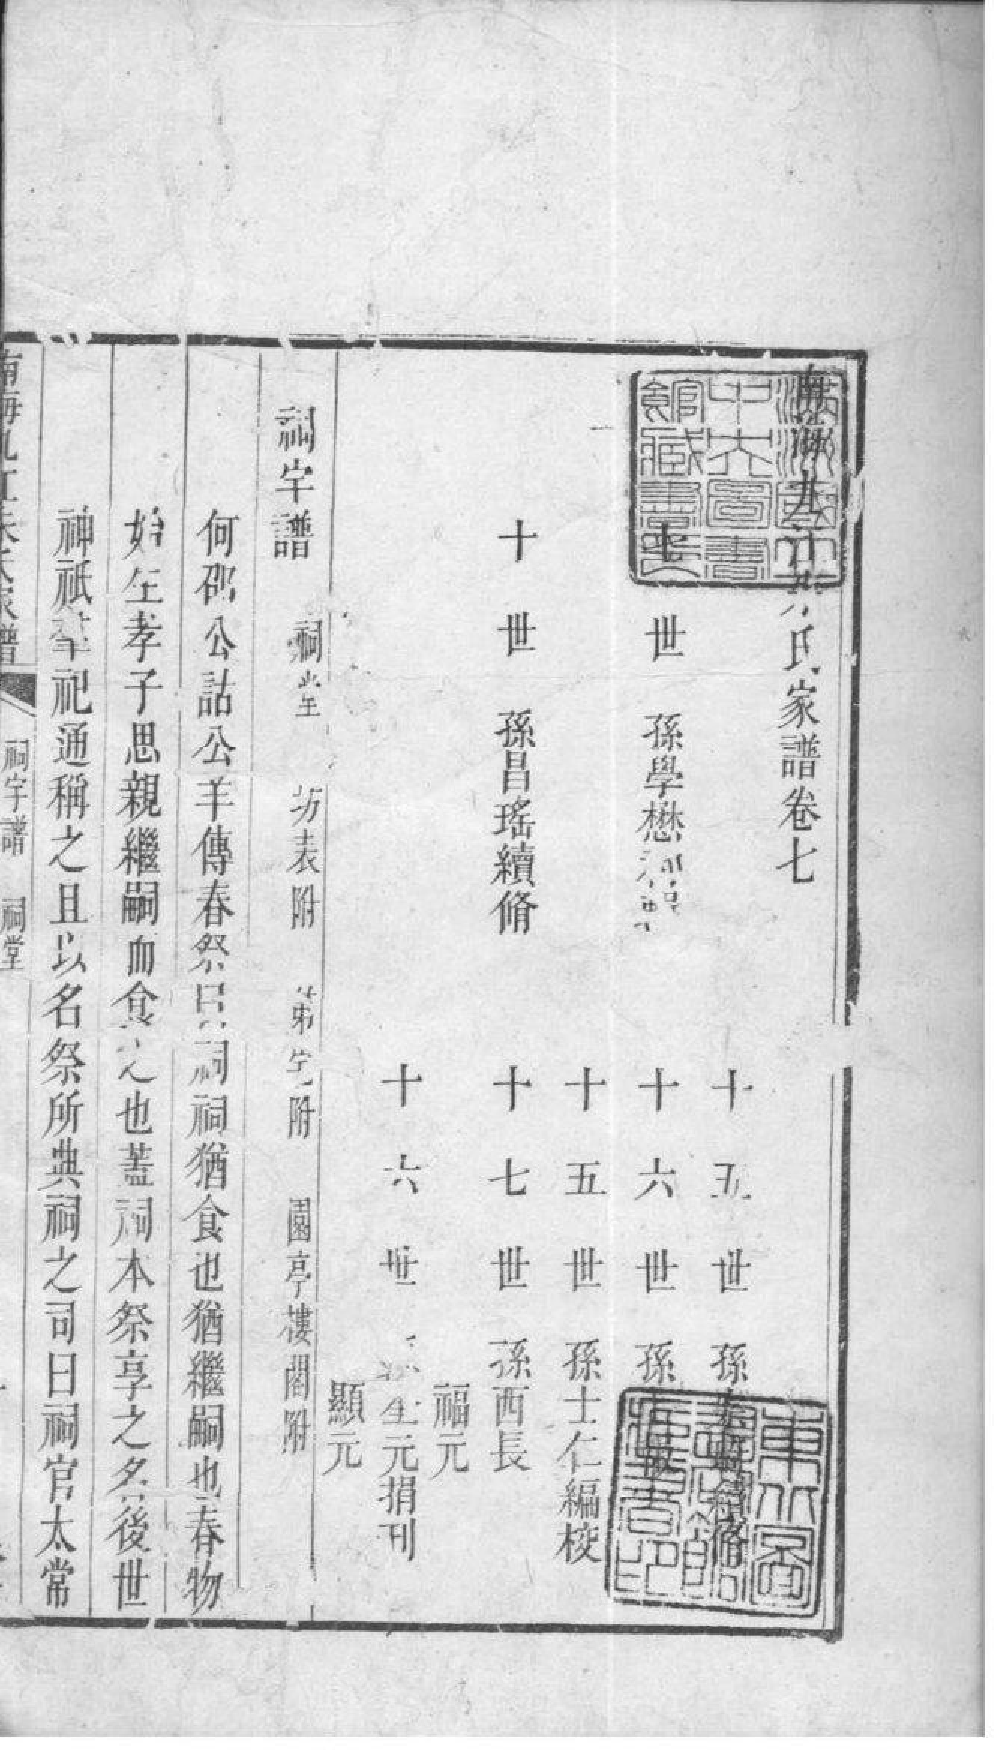 南海九江朱氏家譜卷七
世 孫學懋
十五世 孫
十六世 孫
十五世 孫士仁編校
十世 孫昌瑤續脩
十七世 孫西長
福元
十六世 生元捐刊
顯元
祠宇譜 祠堂 坊表附 第宅附 園亭樓閣附
何邵公詁公羊傳春祭曰祠祠猶食也猶繼嗣也春物
始生孝子思親繼嗣而食之也蓋祠本祭享之名後世
神祇羣祀通稱之且以名祭所典祠之司曰祠官太常
南海九江朱氏家譜 祠宇譜 祠堂